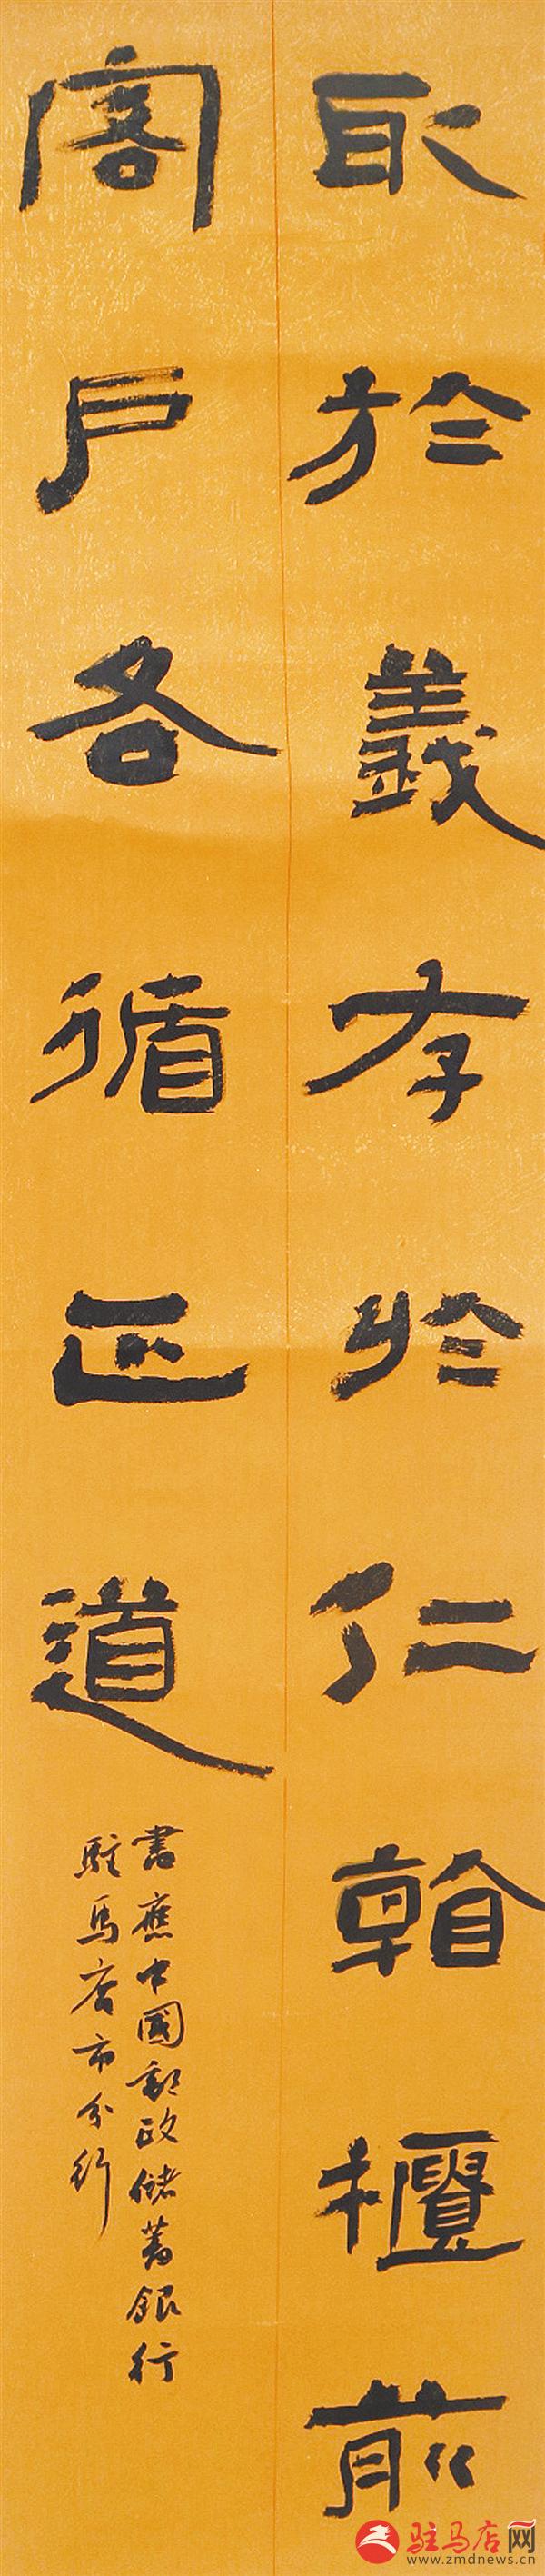 取於義存於仁櫃前
客戶各循正道
書應中國郵政儲蓄銀行
駐馬店市分行
驻马店网
www.zmdnews.cn